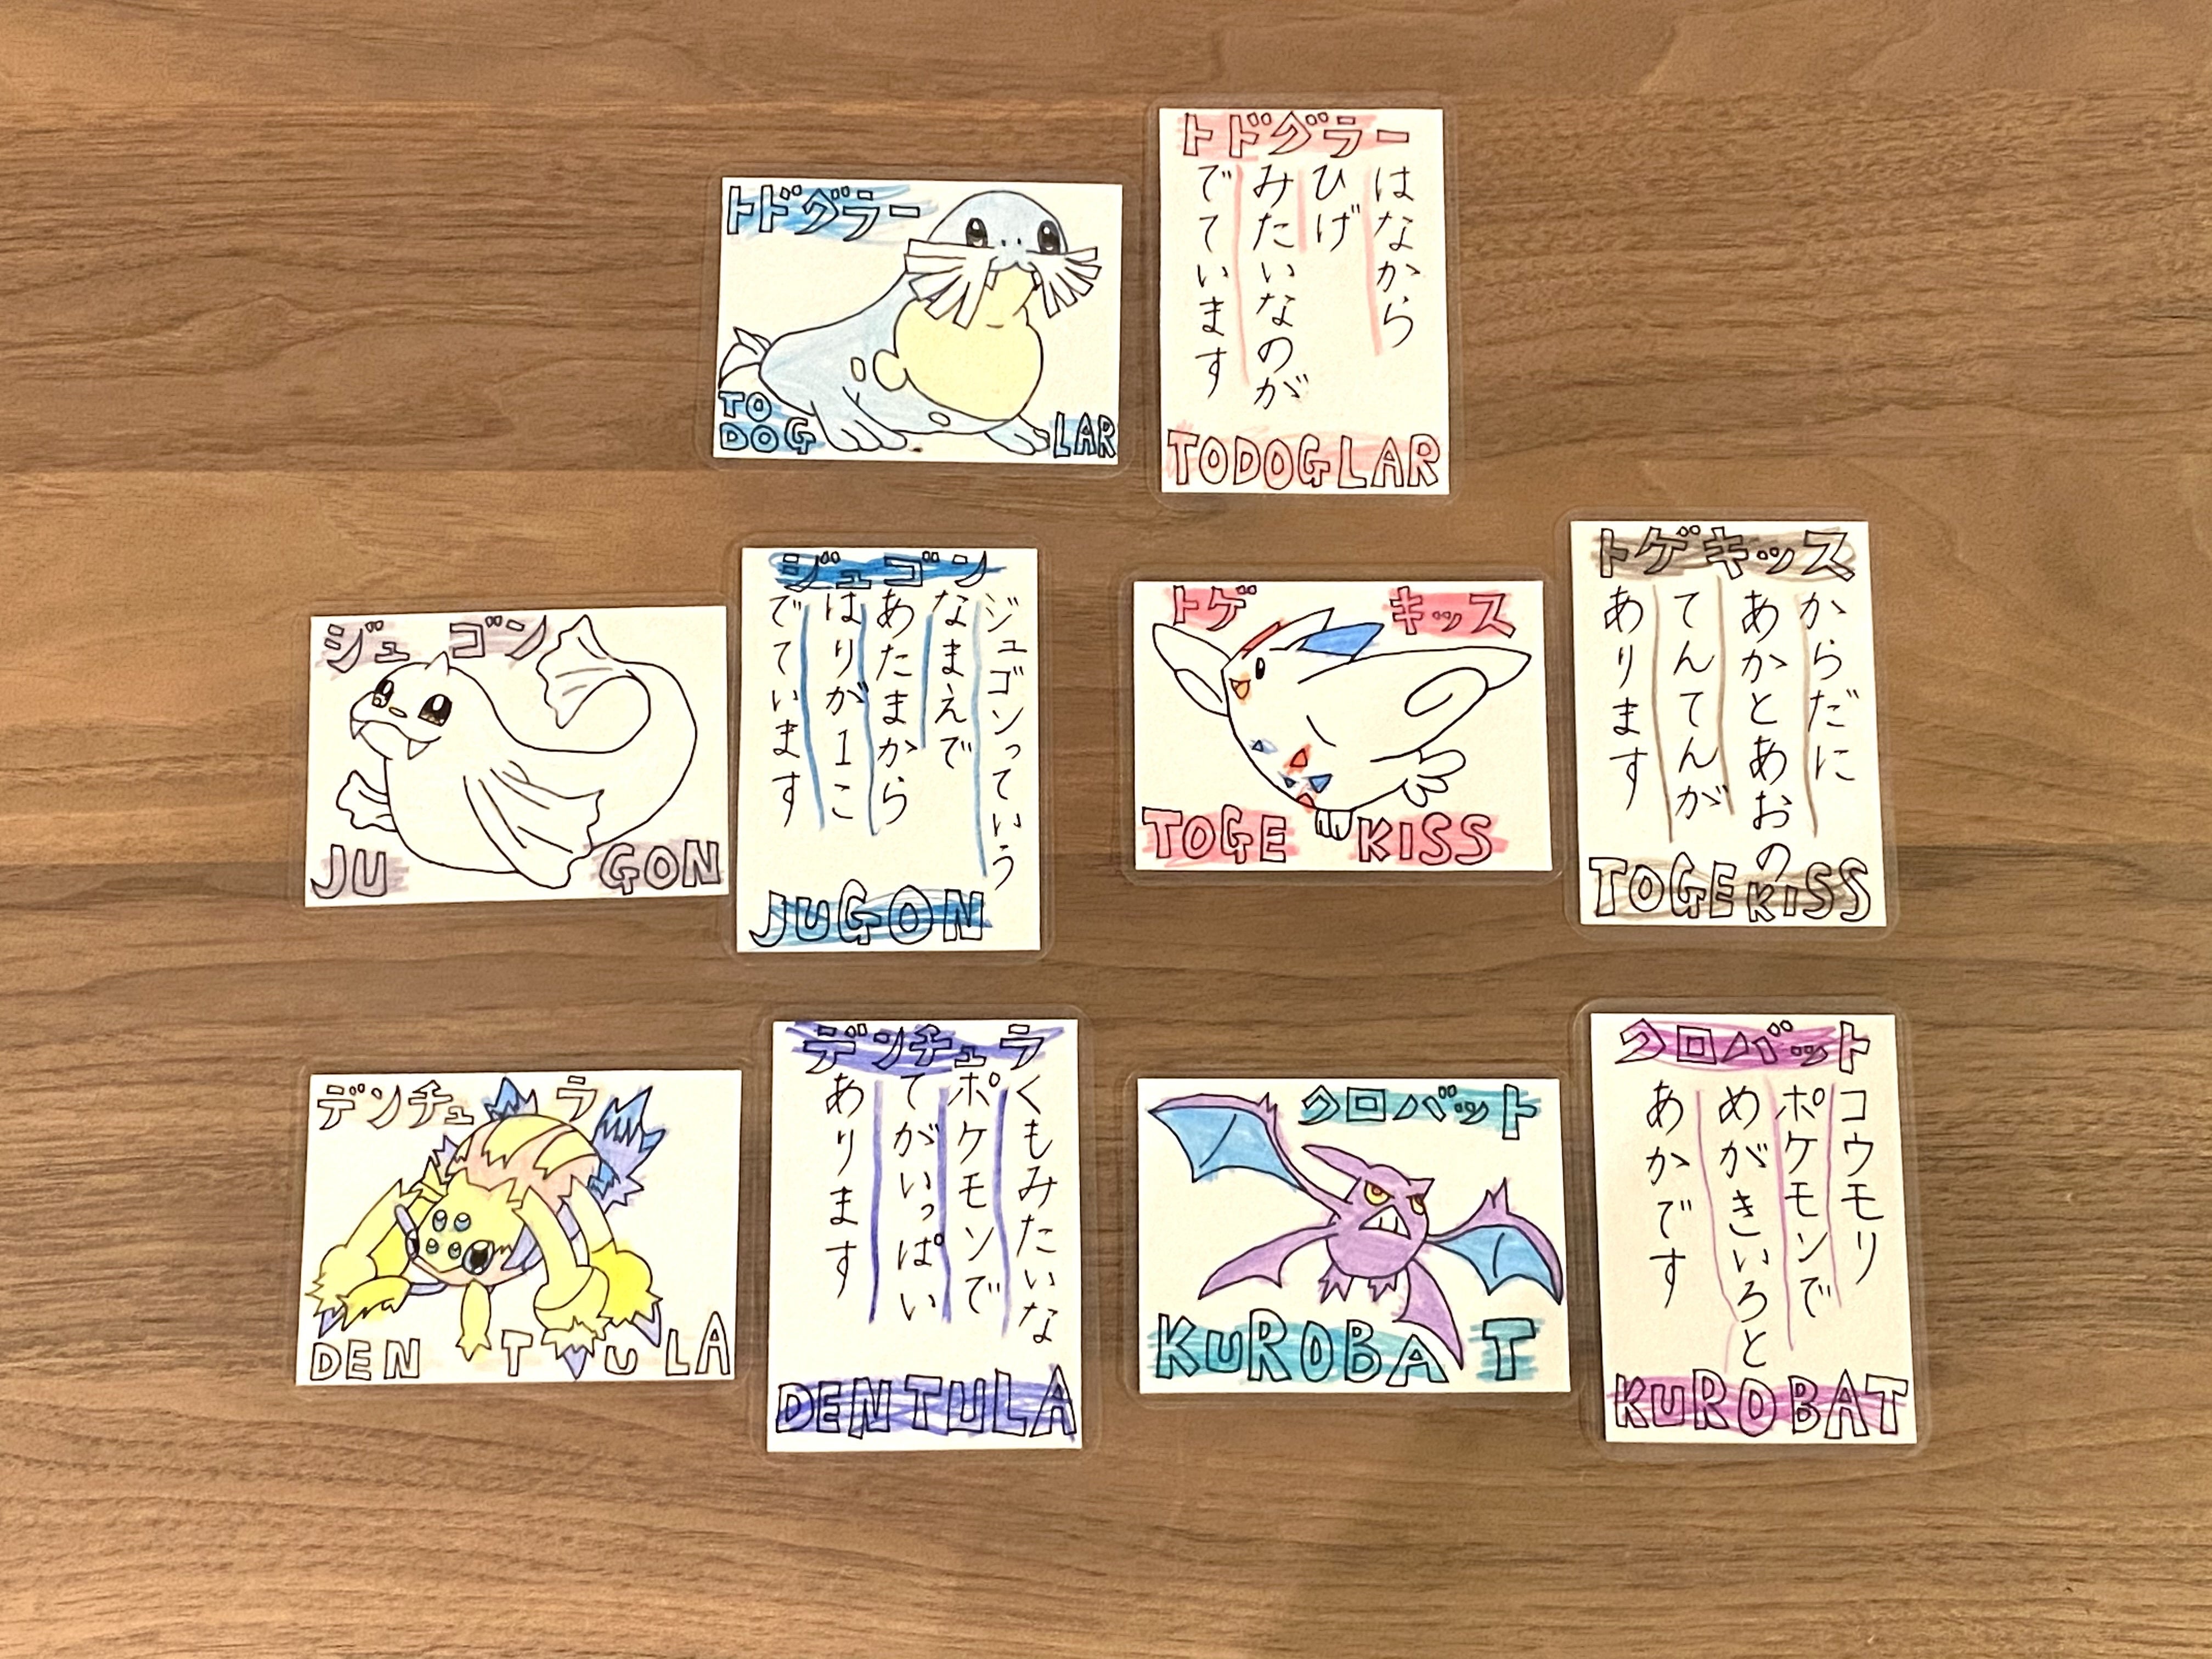 トドグラー
TO
DOG
LAR
トドグラー
はなから
ひげ
みたいなのが
でています
TODOGLAR
ジュゴン
JU GON
ジュゴン
ジュゴンっていう
なまえで
あたまから
はりが1こ
でています
JUGON
トゲ キッス
TOGE KISS
トゲキッス
からだに
あかとあおの
てんてんが
あります
TOGEKISS
デンチュラ
DEN T U LA
デンチュラ
くもみたいな
ポケモンで
てがいっぱい
あります
DENTULA
クロバット
KUROBA T
クロバット
コウモリ
ポケモンで
めがきいろと
あかです
KUROBAT